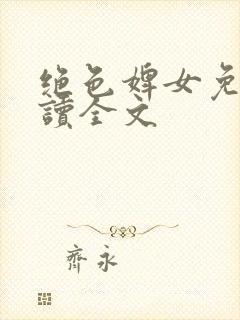 絕色婢女免
讀全文
齊永